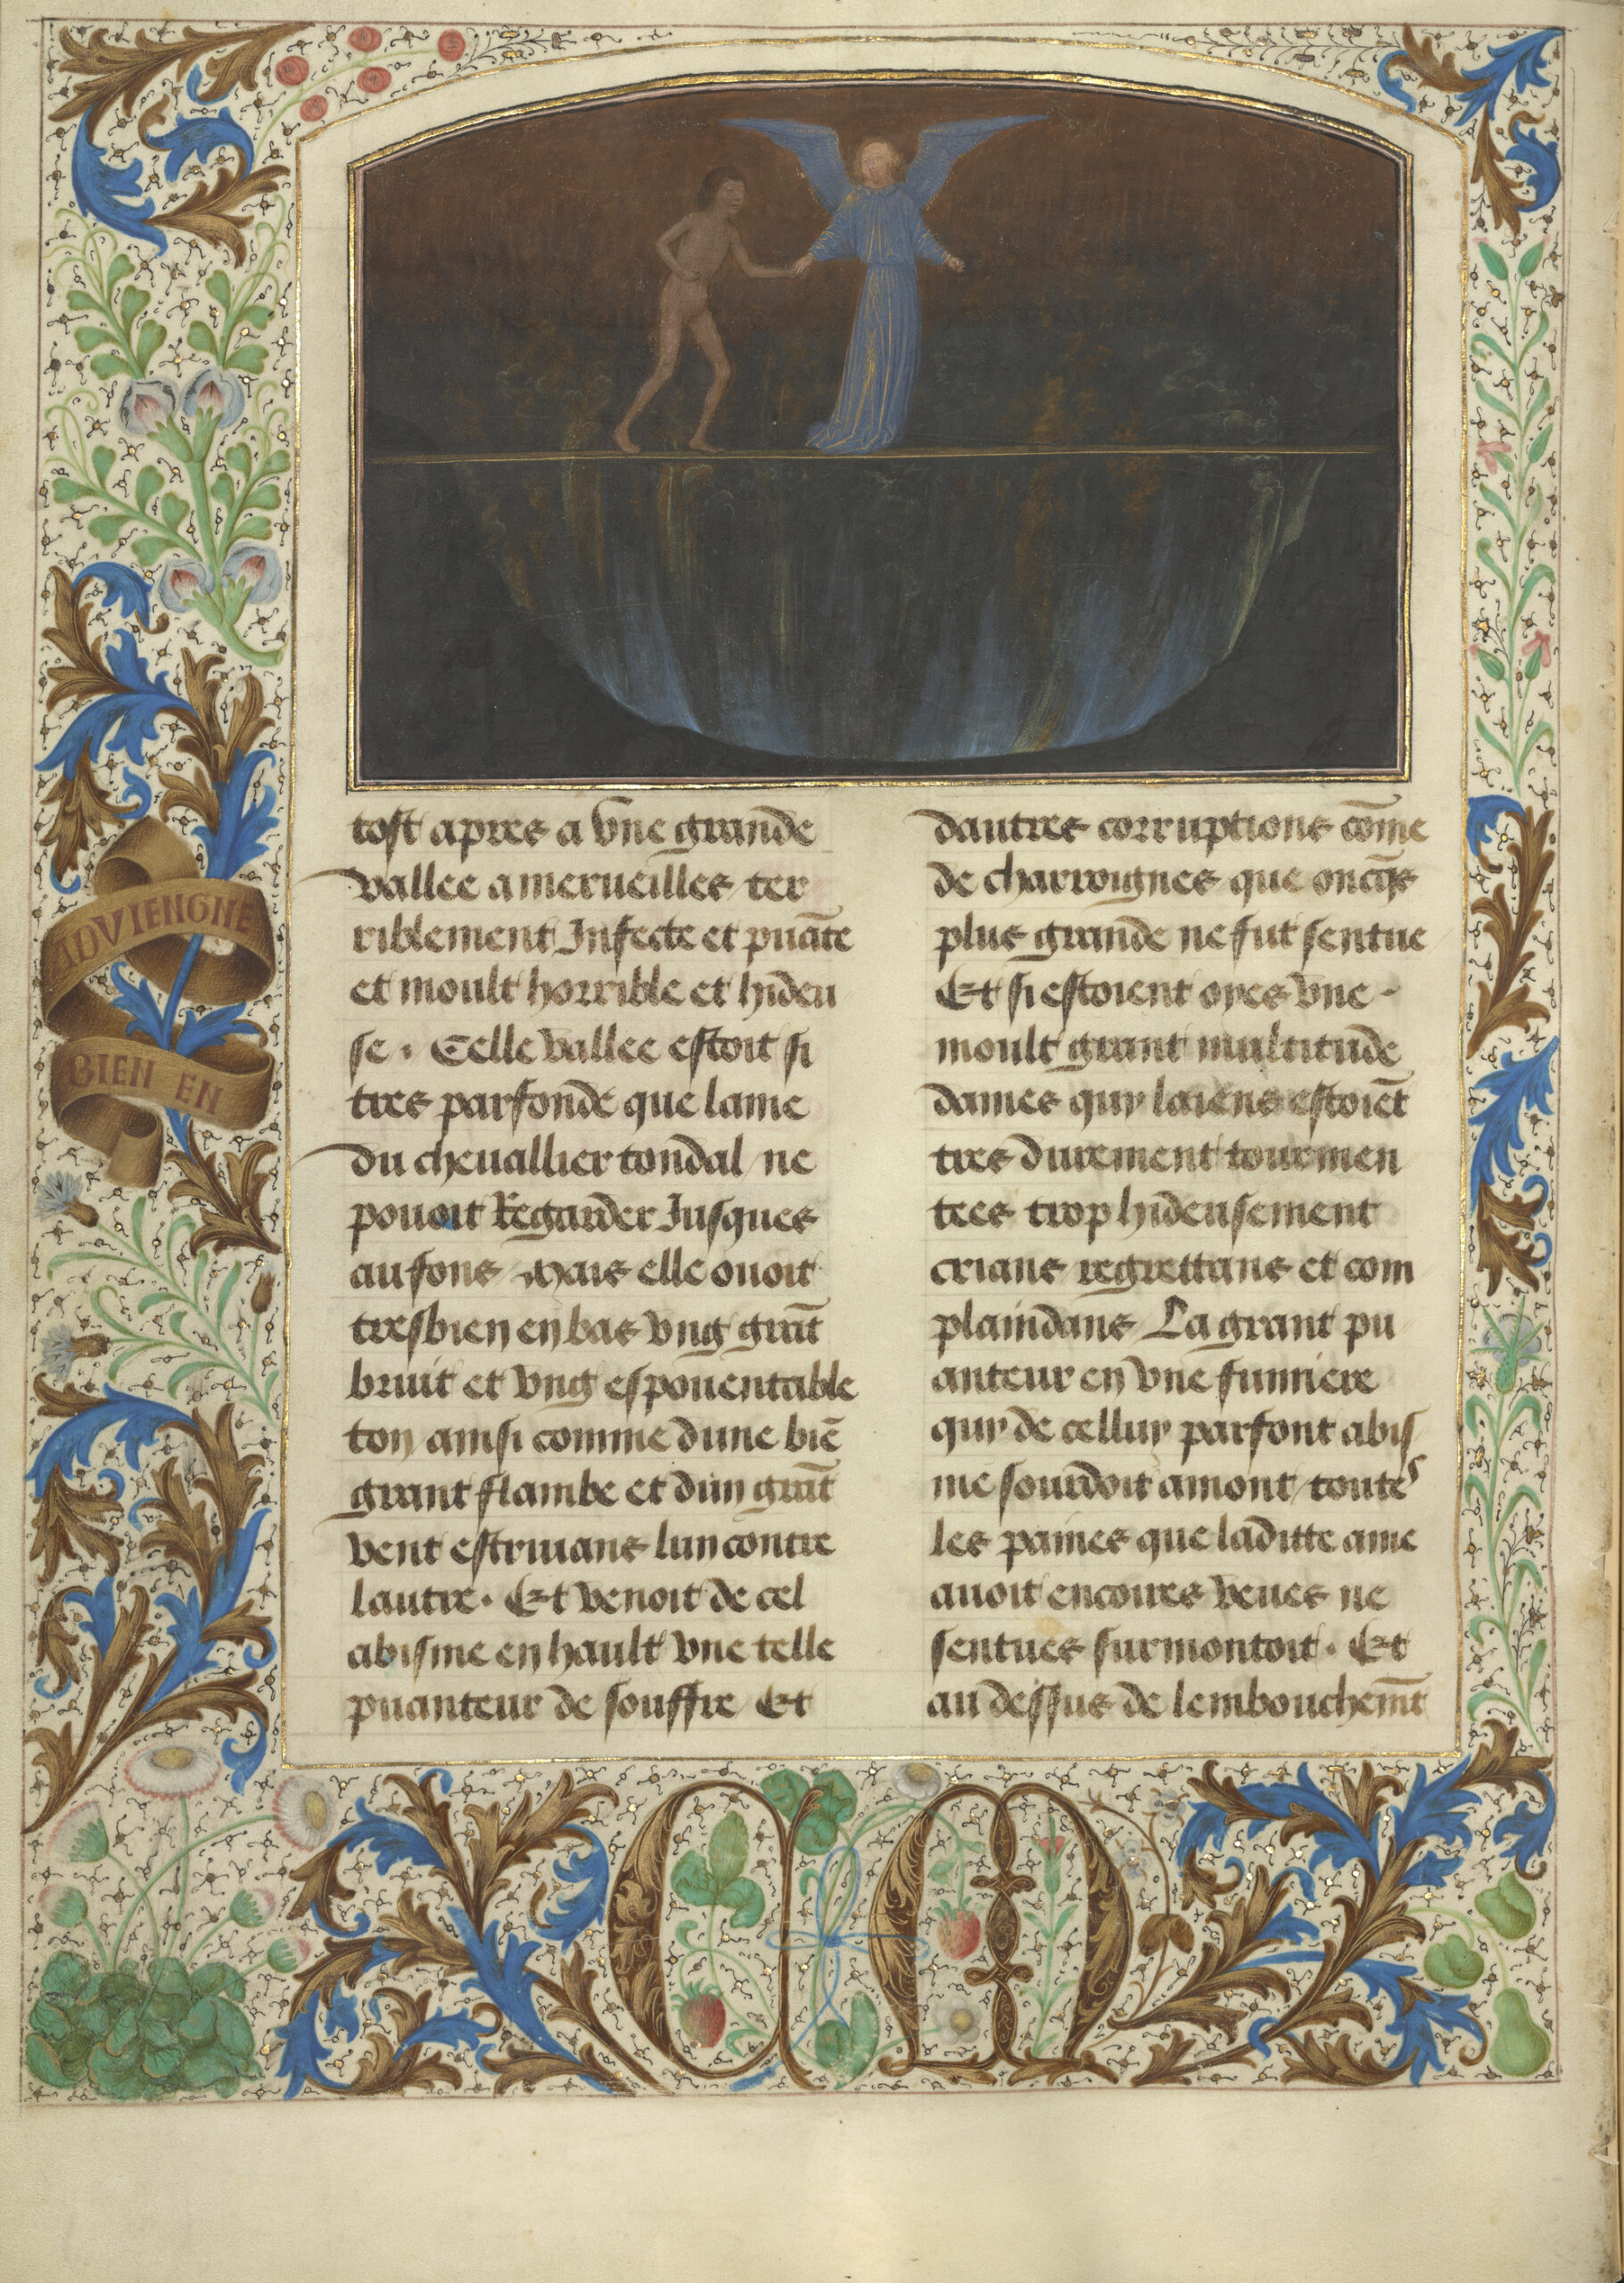 tost apres a vne grande
vallee a merueilles ter
riblement Infecte et puāte
et moult horrible et hideu
se. Celle vallee estoit si
tres parfonde que lame
du cheuallier tondal ne
pouoit Regarder Jusques
au fons Mais elle ouoit
tresbien en bas vng grāt
bruit et vng espouentable
ton ainsi comme dune biē
grant flambe et dun grāt
vent estriuans lun contre
lautre. Et venoit de cel
abisme en hault vne telle
puanteur de souffre Et
dautres corruptions cōme
de charroignes que oncqs
plus grande ne fut sentue
Et si estoient oyes vne
moult grant multitude
dames quy laiens estoiēt
tres durement tourmen
tees trop hideusement
crians regrettans et com
plaindans La grant pu
anteur en vne fumiere
quy de celluy parfont abis
me sourdoit amont toutes
les paines que laditte ame
auoit encores veues ne
sentues surmontoit. Et
au dessus de lembouchemt̄
ADVIENGNE
BIEN EN
C M